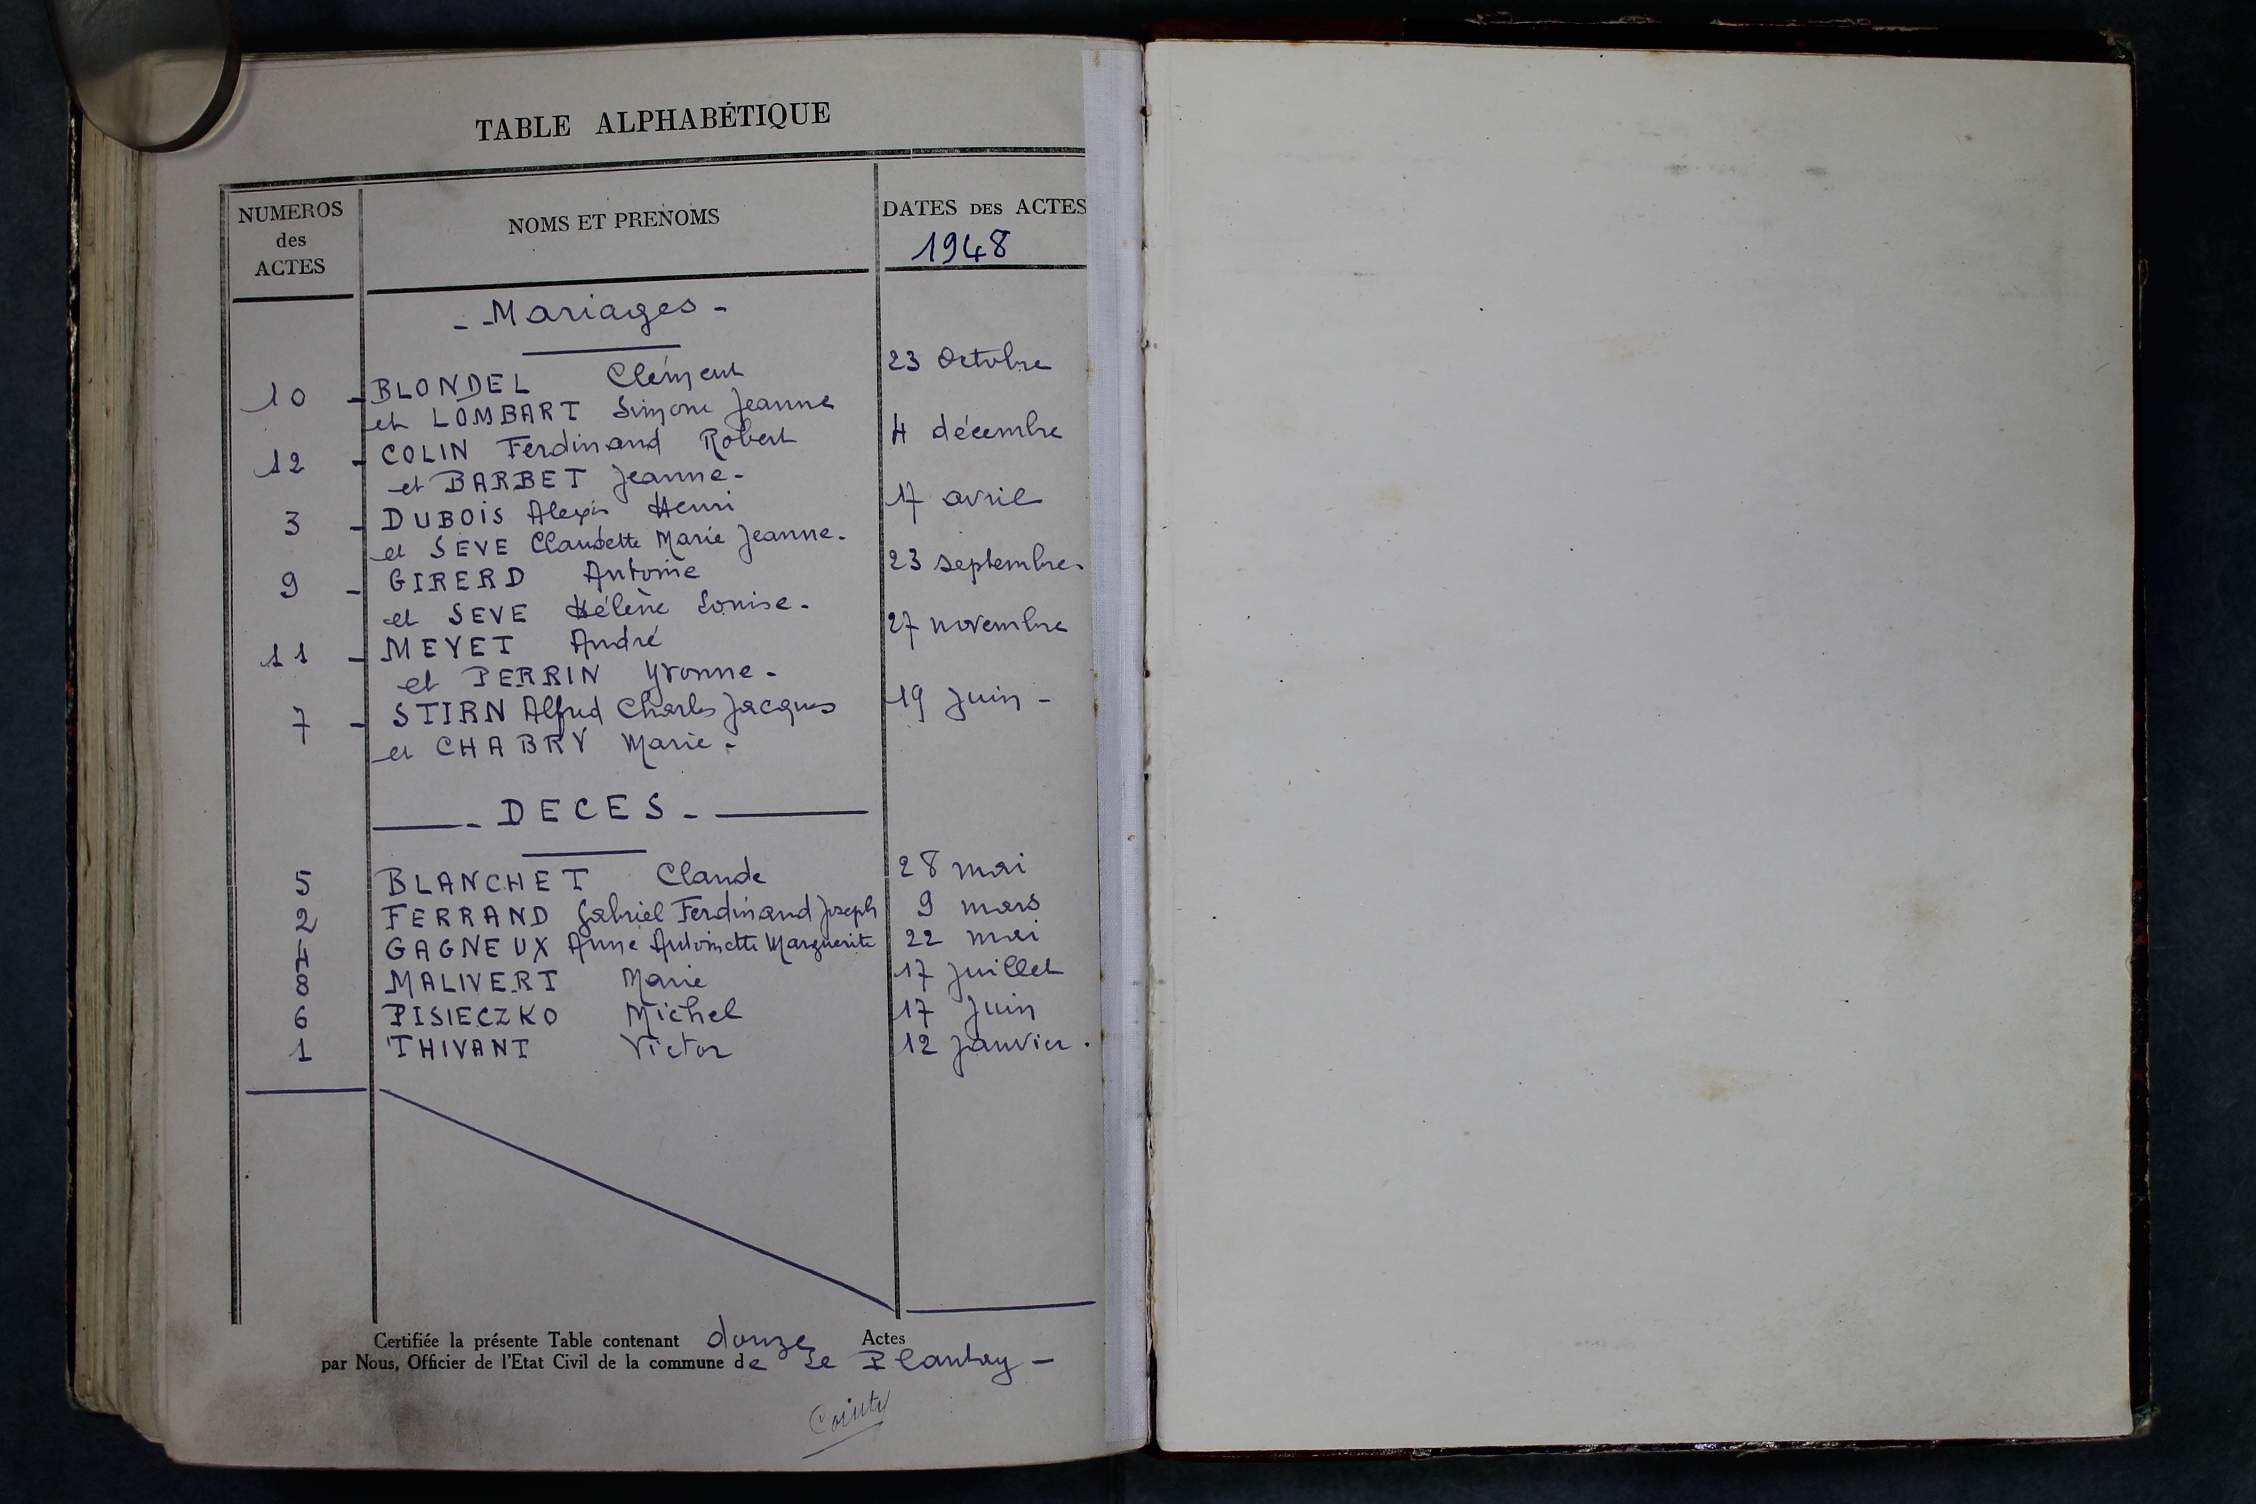 TABLE ALPHABÉTIQUE
NUMEROS des ACTES
NOMS ET PRENOMS
DATES DES ACTES
1948
- - Mariages -
10 - BLONDEL Clément 23 Octobre
et LOMBART Simone Jeanne
12 - COLIN Ferdinand Robert 4 décembre
et BARBET Jeanne -
3 - DUBOIS Alexis Henri 17 avril
et SEVE Claudette Marie Jeanne -
9 - GIRERD Antoine 23 septembre -
et SEVE Hélène Louise -
11 - MEYET André 27 novembre
et PERRIN Yvonne -
7 - STIRN Alfred Charles Jacques 19 Juin -
et CHABRY Marie -
- DECES -
5 BLANCHET Claude 28 mai
2 FERRAND Gabriel Ferdinand Joseph 9 mars
4 GAGNEUX Anne Antoinette Marguerite 22 mai
8 MALIVERT Marie 17 juillet
6 PISIECZKO Michel 17 Juin
1 THIVANT Victor 12 janvier .
Certifiée la présente Table contenant douze Actes
par Nous, Officier de l'Etat Civil de la commune de Le Plantay -